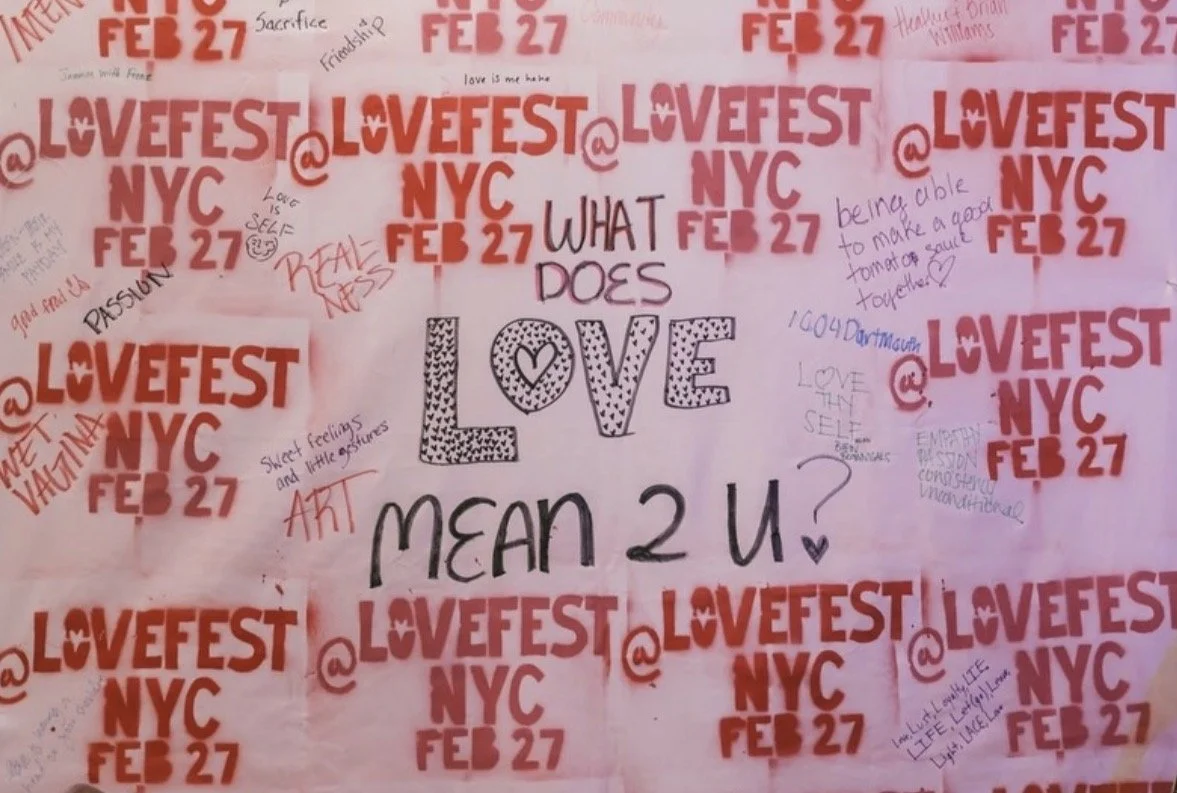 Sacrifice
Friendship
FEB 27
FEB 27
FEB 27
Heather + Brian
Williams
FEB 27
love is me hehe
@LOVEFEST
NYC
FEB 27
@LOVEFEST
NYC
FEB 27
@LOVEFEST
NYC
FEB 27
@LOVEFEST
NYC
FEB 27
LOVE
IS
SELF
REAL-
NESS
good food
PASSION
being able
to make a good
tomato sauce
together
WHAT
DOES
LOVE
MEAN 2 U?
1604 Dartmouth
LOVE
THY
SELF
@LOVEFEST
NYC
FEB 27
WET
VAGINA
Sweet feelings
and little gestures
ART
@LOVEFEST
NYC
FEB 27
EMPATHY
PASSION
consistency
unconditional
@LOVEFEST
NYC
FEB 27
@LOVEFEST
NYC
FEB 27
@LOVEFEST
NYC
FEB 27
@LOVEFEST
NYC
FEB 27
Love, Lust, Loyalty, LIE
LIFE, Let (go), Learn,
Light, LACE, Love
LOVEFEST